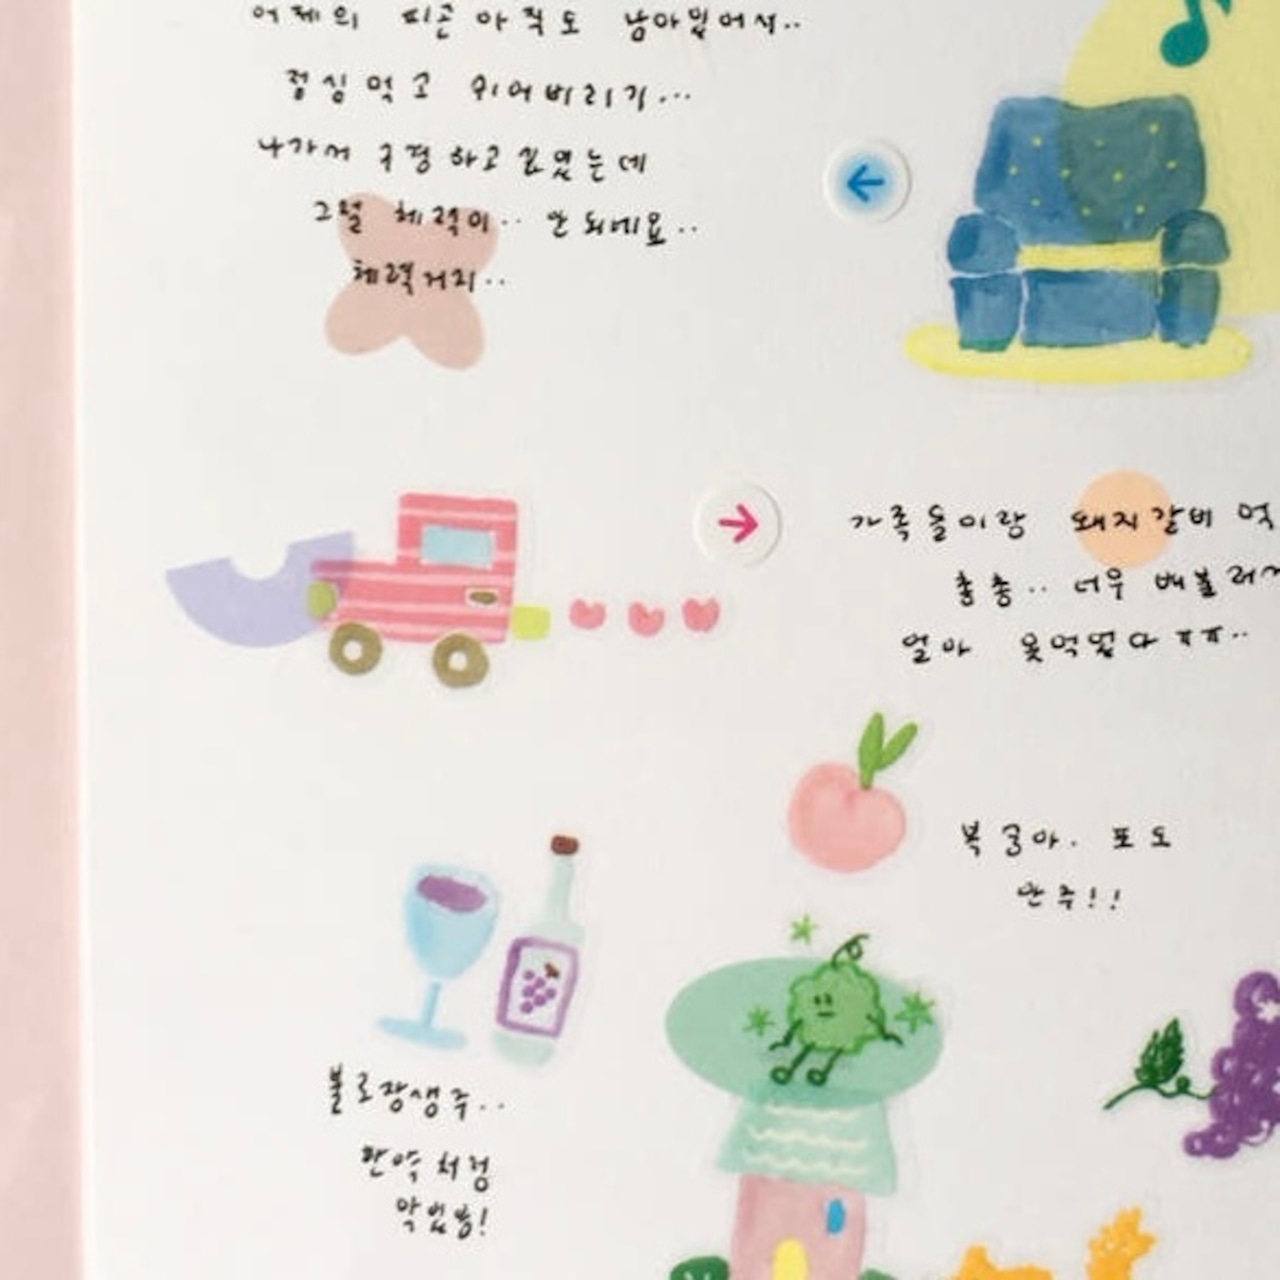 어제의 피곤 아직도 남아있어서..
점심먹고 쉬어버리기...
나가서 구경하고 싶었는데
그럴 체력이.. 안되네요..
체력거지..
가족들이랑 돼지갈비 먹
춤춤.. 너무 배불러서
얼마 못먹었다 ㅠㅠ..
복숭아. 포도
안주!!
불로장생주..
한약처럼